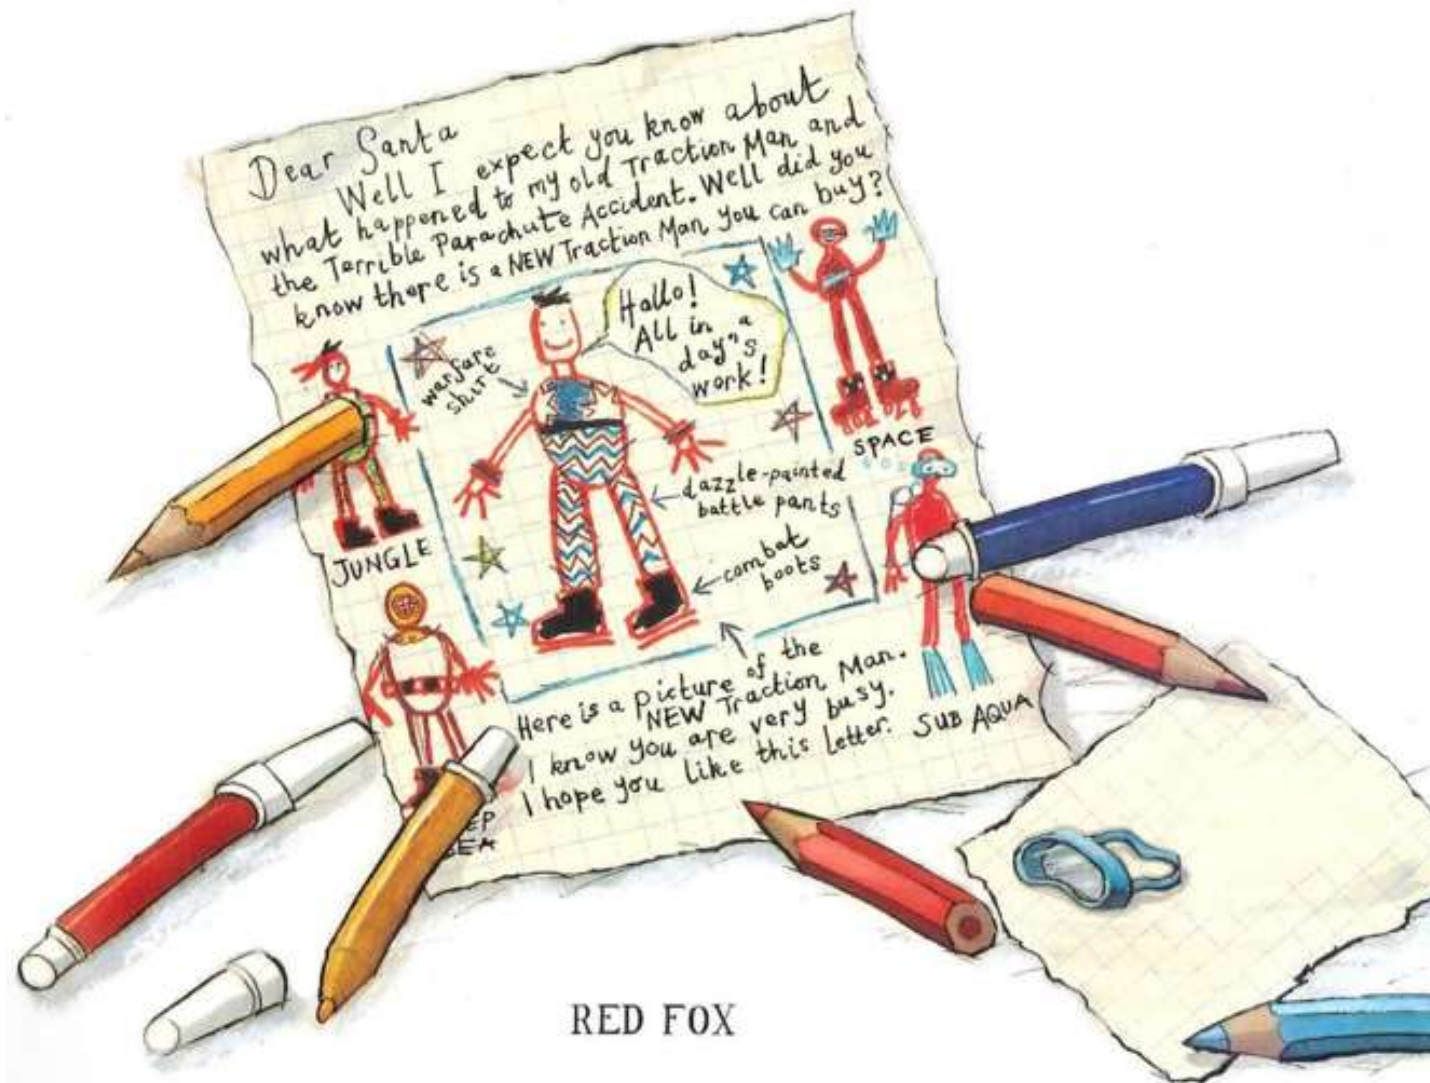 Dear Santa
Well I expect you know about
what happened to my old Traction Man and
the Terrible Parachute Accident. Well did you
know there is a NEW Traction Man you can buy?
Hallo!
All in a
day's
work!
warfare
shirt
SPACE
dazzle-painted
battle pants
JUNGLE
combat
boots
Here is a picture of the
NEW Traction Man.
I know you are very busy.
I hope you like this letter.
SUB AQUA
RED FOX